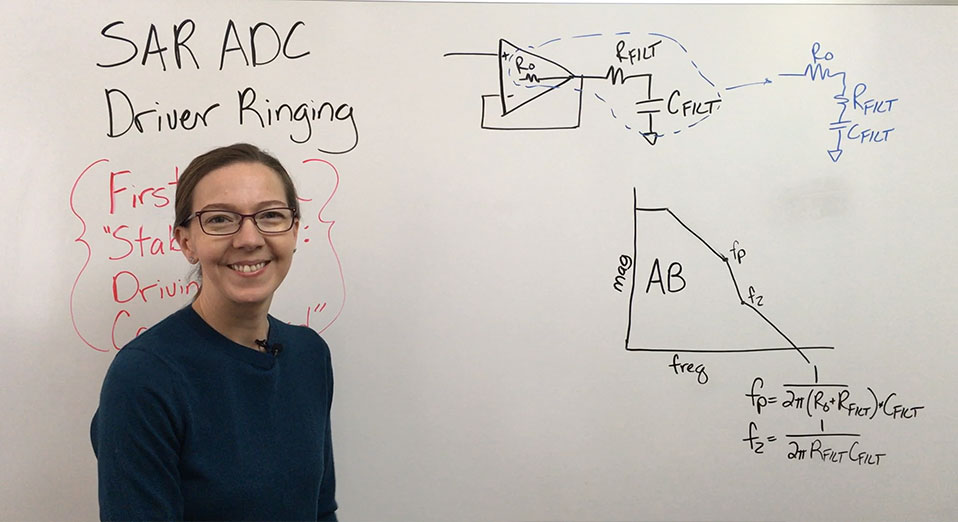 SAR ADC
Driver Ringing
First
"Stab :
Drivin
C "
+
-
Ro
RFILT
CFILT
Ro
RFILT
CFILT
mag
AB
fp
fz
freq
fp = 1 / 2π(Ro+RFILT)•CFILT
fz = 1 / 2πRFILTCFILT